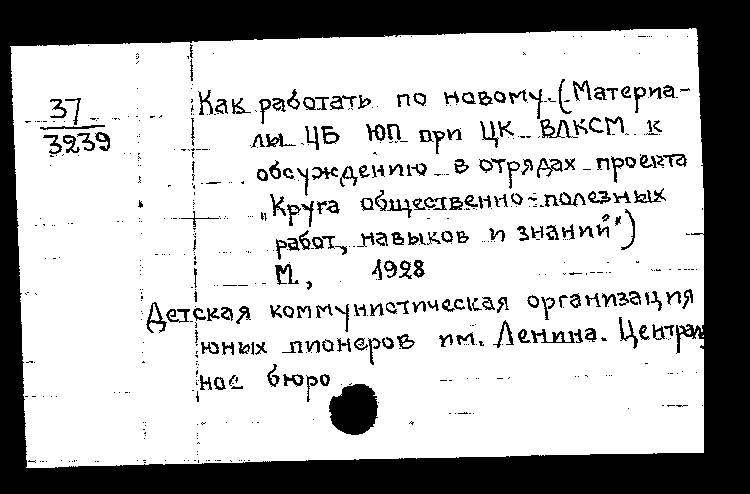 37
3239
Как работать по новому (Материа-
лы ЦБ ЮП при ЦК ВЛКСМ к
обсуждению в отрядах проекта
„Круга общественно-полезных
работ, навыков и знаний")
М., 1928
Детская коммунистическая организация
юных пионеров им. Ленина. Централь
ное бюро